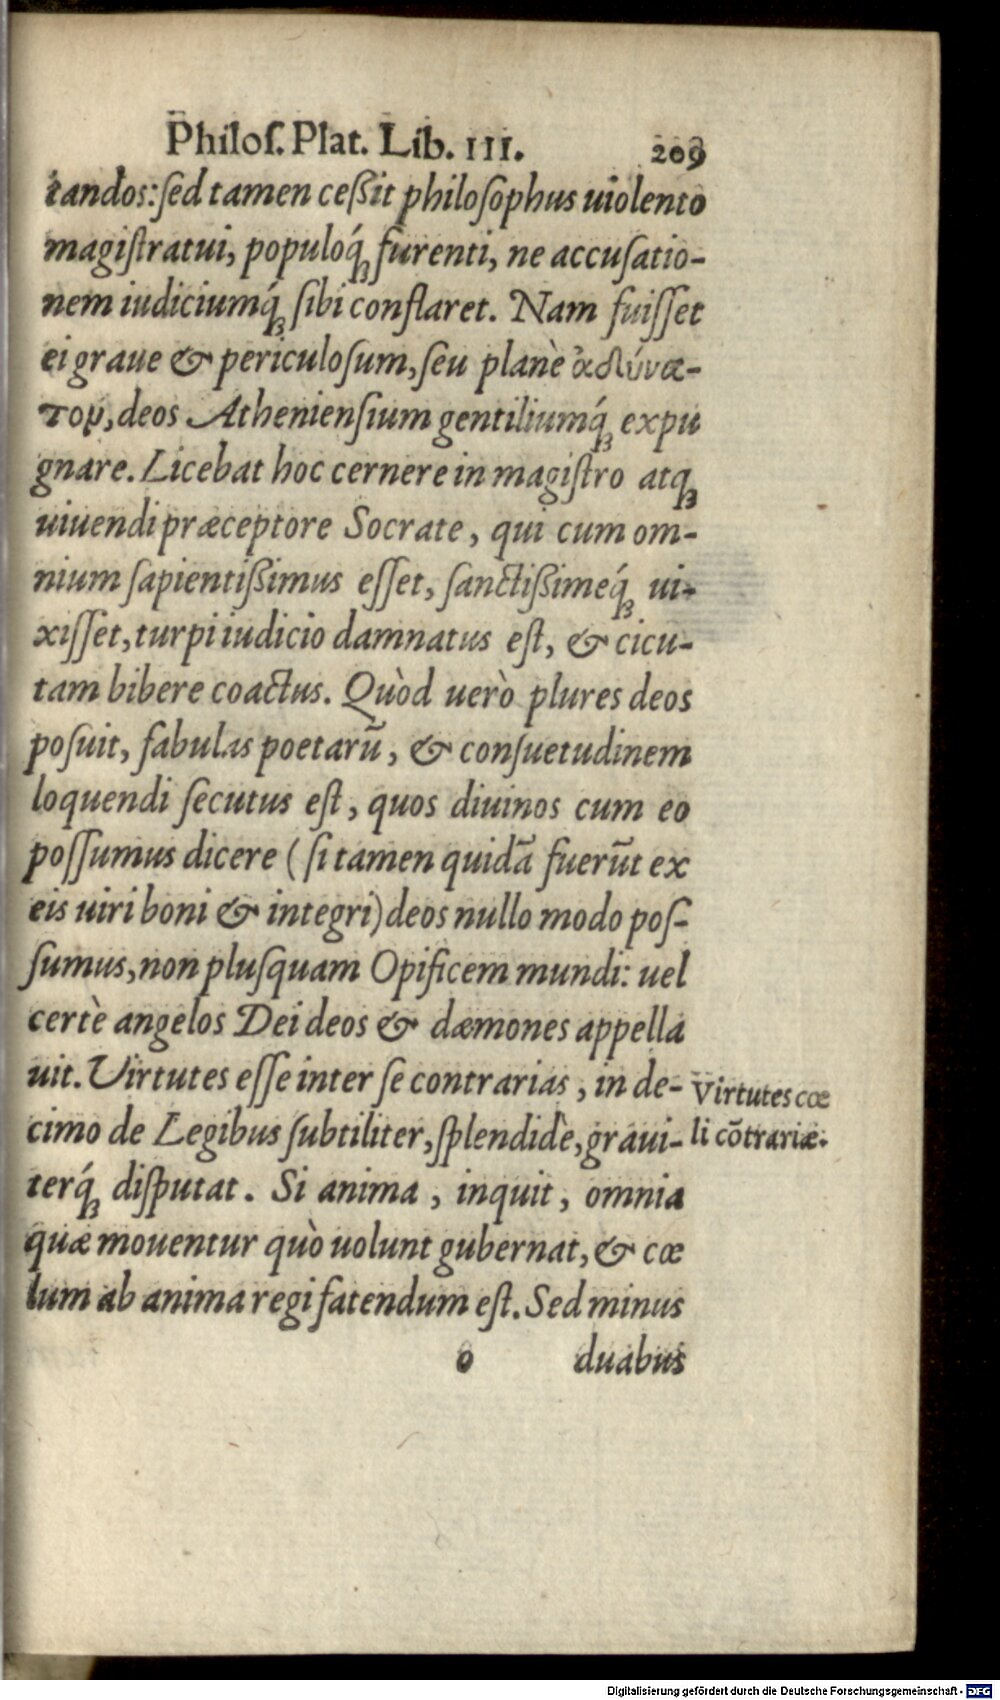 Philoſ. Plat. Lib. III. 209
tandos: ſed tamen ceßit philoſophus uiolento
magiſtratui, populoq́ꝫ furenti, ne accuſatio-
nem iudiciumq́ꝫ ſibi conflaret. Nam fuiſſet
ei graue & periculoſum, ſeu planè ἀδύνα-
τον, deos Athenienſium gentiliumq́ꝫ expu
gnare. Licebat hoc cernere in magiſtro atqꝫ
uiuendi præceptore Socrate, qui cum om-
nium ſapientißimus eſſet, ſanctißimeq́ꝫ ui-
xiſſet, turpi iudicio damnatus eſt, & cicu-
tam bibere coactus. Quòd uerò plures deos
poſuit, fabulas poetarũ, & conſuetudinem
loquendi ſecutus eſt, quos diuinos cum eo
poſſumus dicere (ſi tamen quidã fuerũt ex
eis uiri boni & integri) deos nullo modo poſ-
ſumus, non pluſquam Opificem mundi: uel
certè angelos Dei deos & dæmones appella
uit. Virtutes eſſe inter ſe contrarias, in de-
cimo de Legibus ſubtiliter, ſplendidè, graui-
terq́ꝫ diſputat. Si anima, inquit, omnia
quæ mouentur quò uolunt gubernat, & cœ
lum ab anima regi fatendum eſt. Sed minus
o duabus
Virtutes cœ
li cõtrariæ.
Digitalisierung gefördert durch die Deutsche Forschungsgemeinschaft - DFG